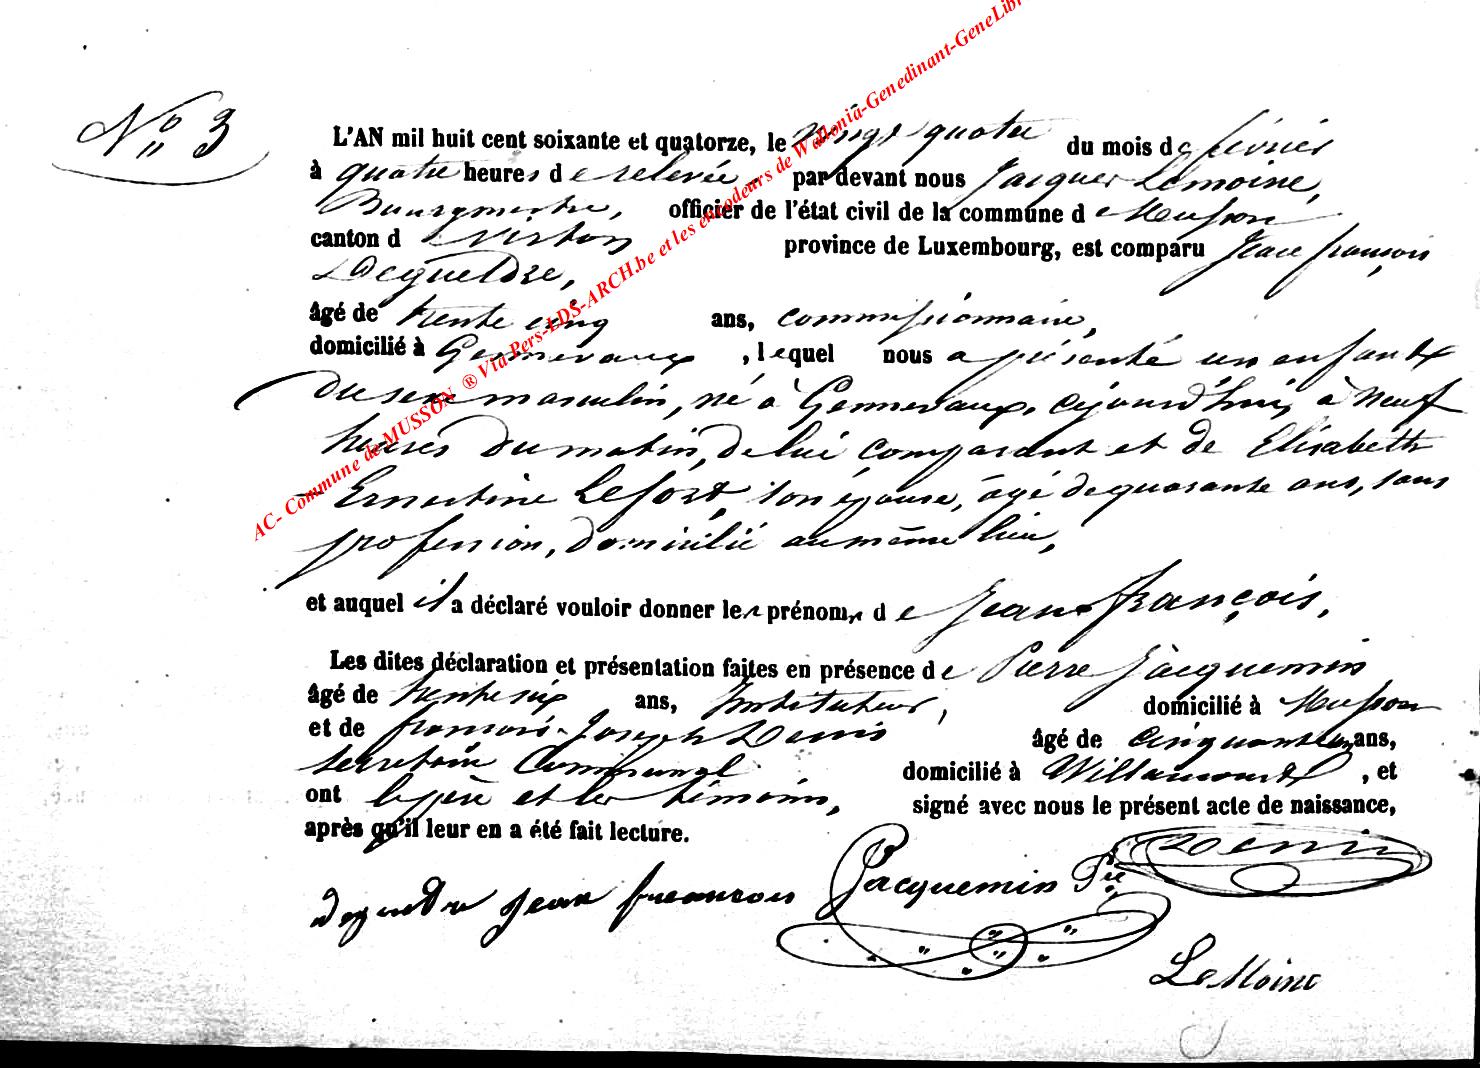 N° 3
L'AN mil huit cent soixante et quatorze, le vingt quatre du mois de février
à quatre heures de relevée par devant nous Jacques Lemoine,
Bourgmestre, officier de l'état civil de la commune de Musson
canton d Virton province de Luxembourg, est comparu Jean François
âgé de trente cinq ans, commissionnaire,
domicilié à Gennevaux, lequel nous a présenté un enfant
du sexe masculin, né à Gennevaux, cejourd'hui, à neuf
heures du matin, de lui comparant et de Elisabeth
Ernestine Lefort, son épouse, âgé de quarante ans, sans
profession, domicilié au même lieu,
et auquel il a déclaré vouloir donner les prénoms de Jean François.
Les dites déclaration et présentation faites en présence de Pierre Jacquemin
âgé de trente six ans, Instituteur, domicilié à Musson
et de françois-Joseph Denis âgé de cinquante un ans,
secretaire Communal domicilié à Willancourt, et
ont le père et les témoins, signé avec nous le présent acte de naissance,
après qu'il leur en a été fait lecture.
Jean francois Jacquemin Pre Denis
LeMoine
AC- Commune de MUSSON ® Via Pers-LDS-ARCH.be et les encodeurs de Wallonia-Genedinant-GeneLibr